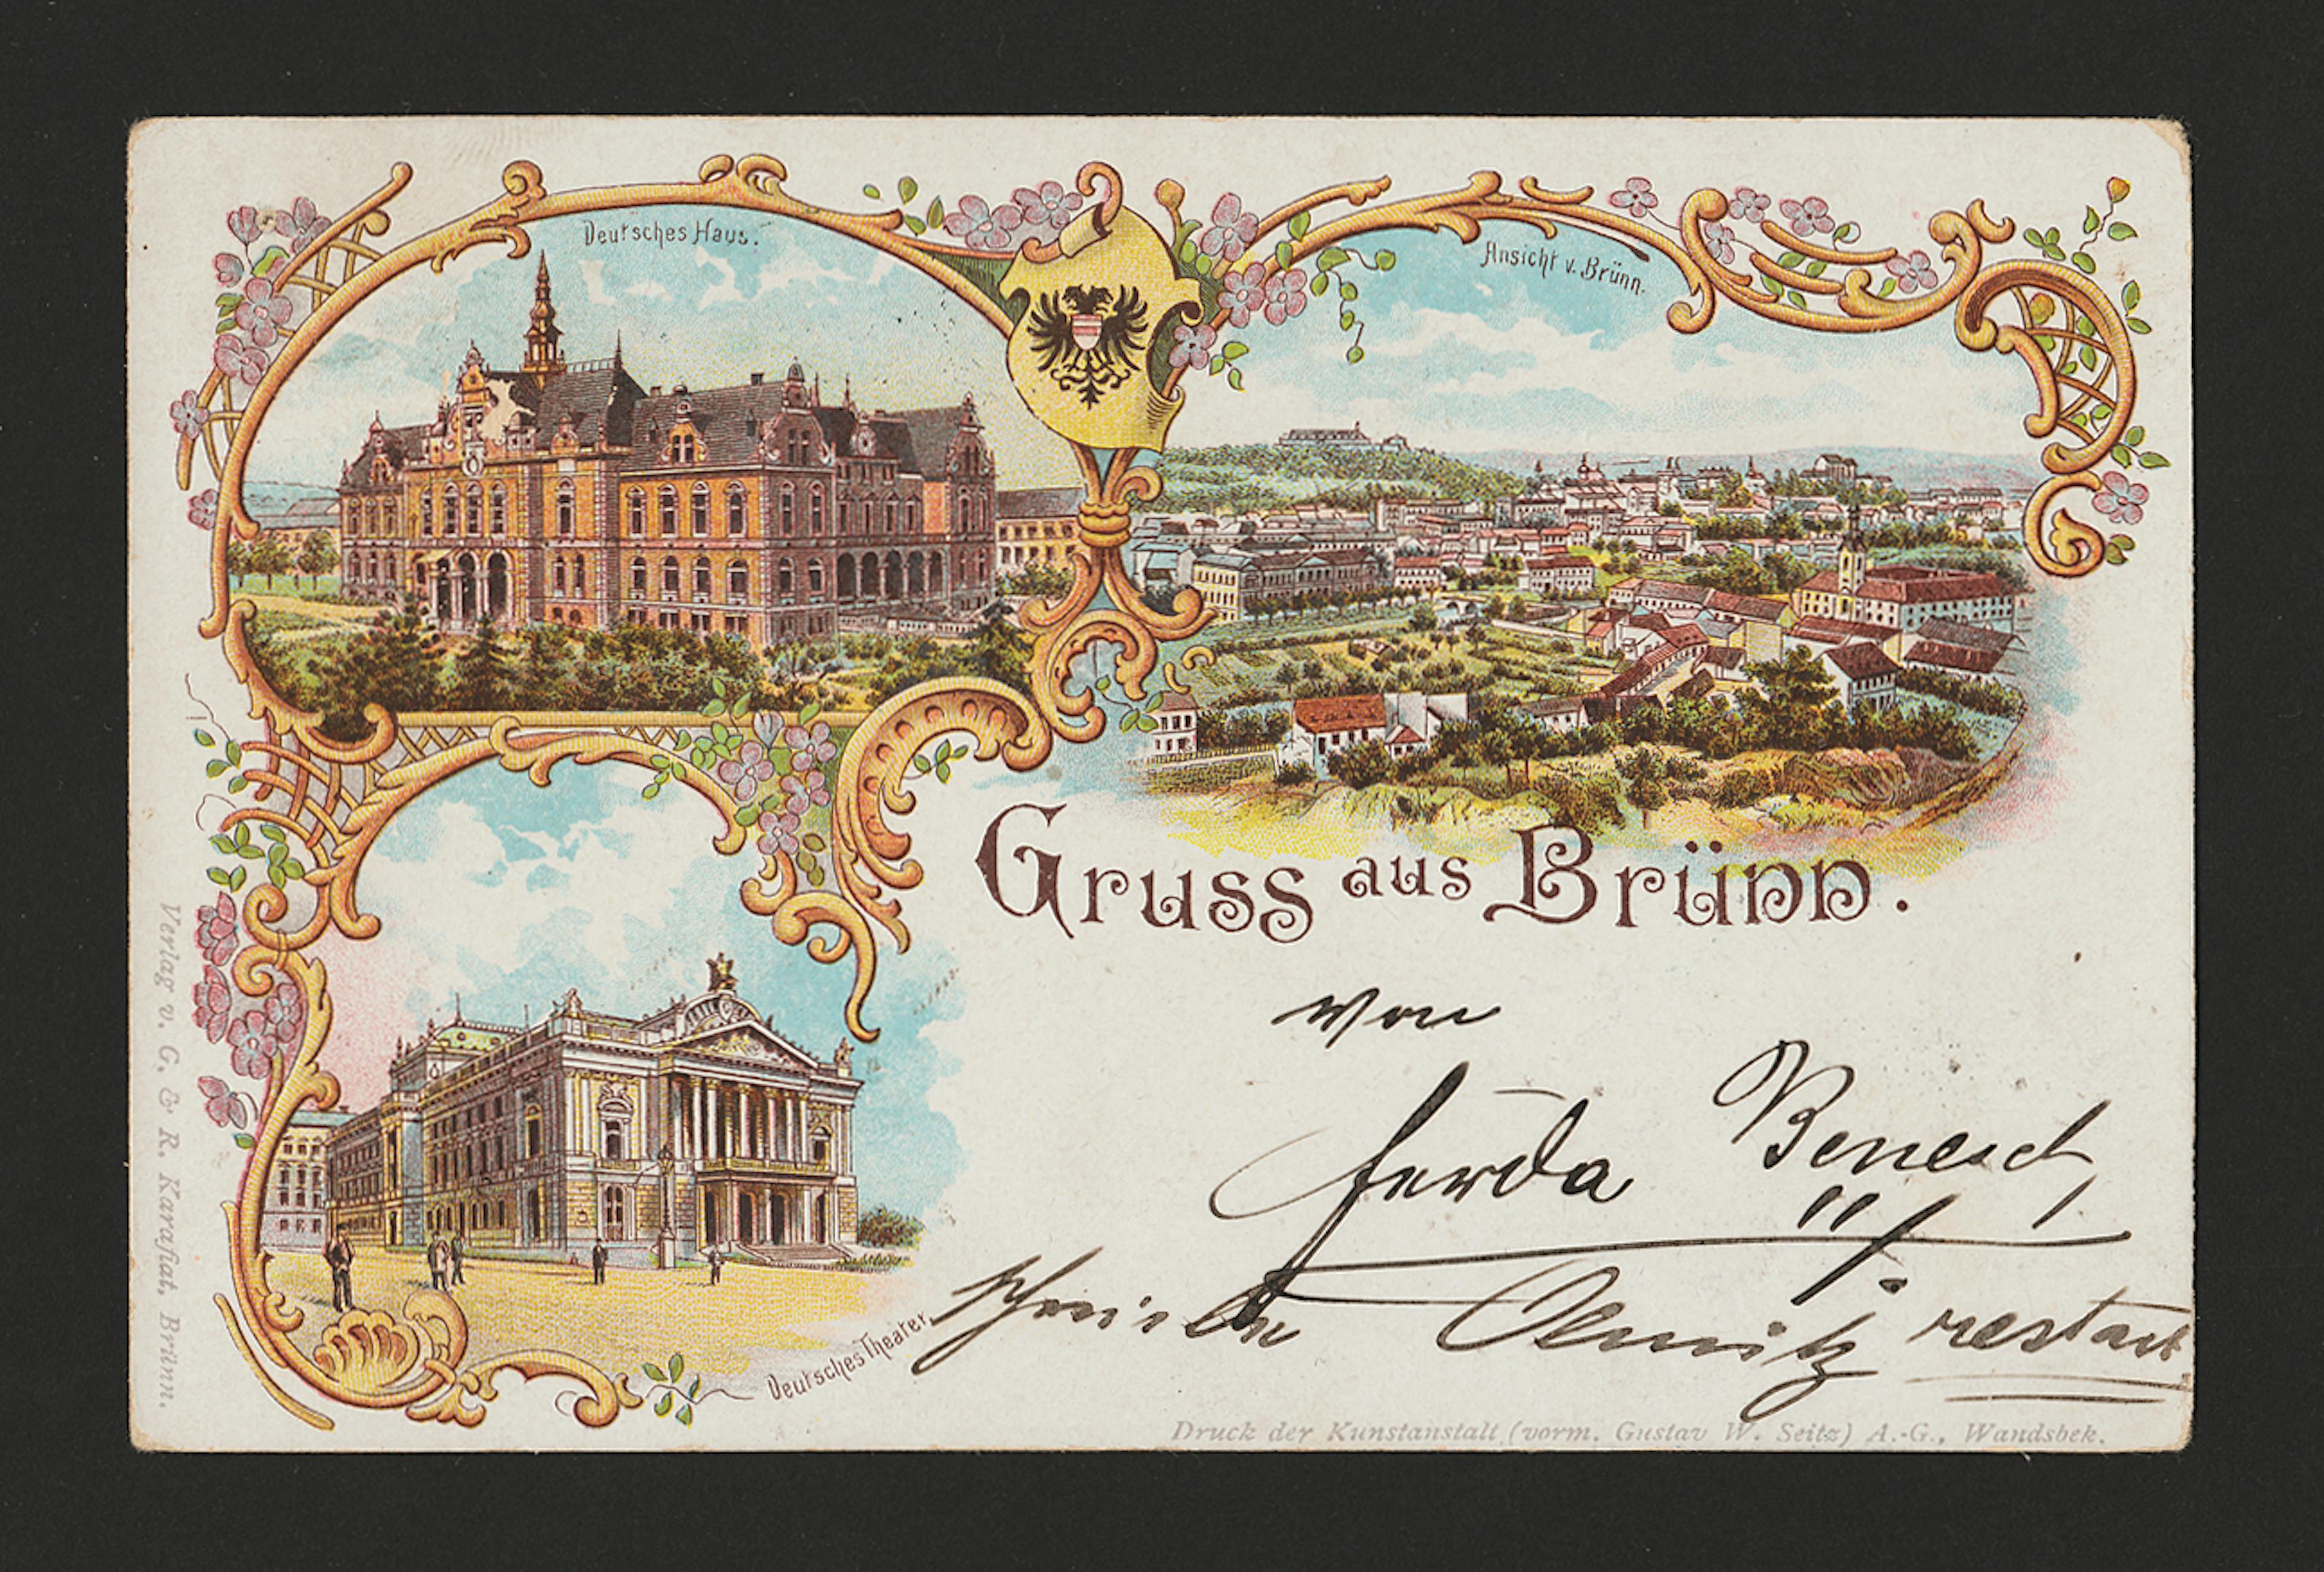 Deutsches Haus.
Ansicht v. Brünn.
Gruss aus Brünn.
von
Ferda Benesch
schreibe Olmütz restant
Deutsches Theater.
Verlag v. G. & R. Karafiat, Brünn.
Druck der Kunstanstalt (vorm. Gustav W. Seitz) A.-G., Wandsbek.